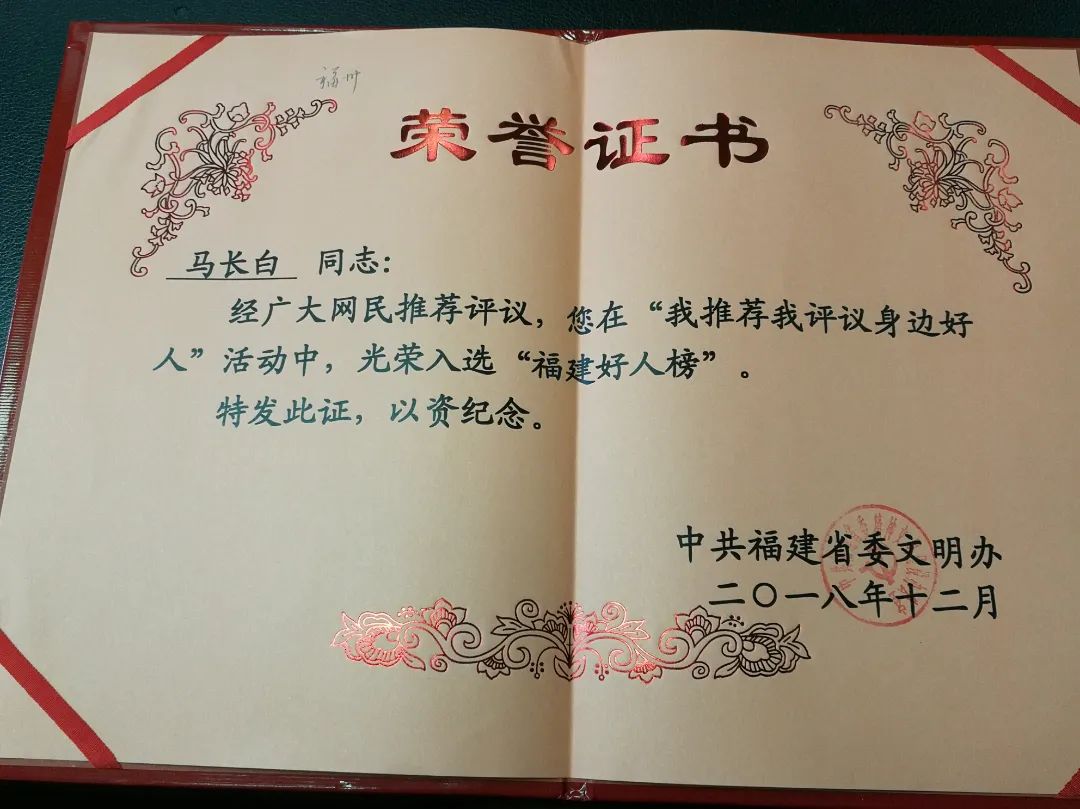 福州
荣誉证书
马长白 同志：
经广大网民推荐评议，您在“我推荐我评议身边好
人”活动中，光荣入选“福建好人榜”。
特发此证，以资纪念。
中共福建省委文明办
二〇一八年十二月